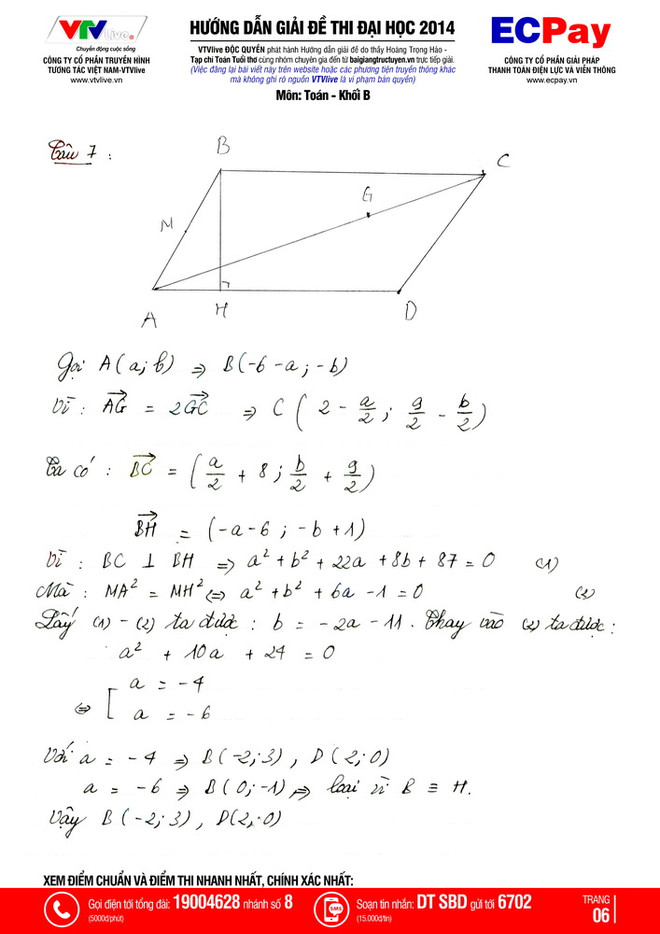 VTV
live
Chuyển động cuộc sống
CÔNG TY CỔ PHẦN TRUYỀN HÌNH
TƯƠNG TÁC VIỆT NAM-VTVlive
www.vtvlive.vn
HƯỚNG DẪN GIẢI ĐỀ THI ĐẠI HỌC 2014
VTVlive ĐỘC QUYỀN phát hành Hướng dẫn giải đề do thầy Hoàng Trọng Hảo -
Tạp chí Toán Tuổi thơ cùng nhóm chuyên gia đến từ baigiangtructuyen.vn trực tiếp giải.
(Việc đăng lại bài viết này trên website hoặc các phương tiện truyền thông khác
mà không ghi rõ nguồn VTVlive là vi phạm bản quyền)
Môn: Toán - Khối B
ECPay
CÔNG TY CỔ PHẦN GIẢI PHÁP
THANH TOÁN ĐIỆN LỰC VÀ VIỄN THÔNG
www.ecpay.vn
Câu 7 :
B
C
G
M
A
H
D
Gọi A(a; b) ⇒ B(-6 - a; -b)
Vì : AG→ = 2GC→ ⇒ C ( 2 - a/2 ; 9/2 - b/2 )
Ta có : BC→ = ( a/2 + 8 ; b/2 + 9/2 )
BH→ = (-a - 6 ; -b + 1)
Vì : BC ⊥ BH ⇒ a² + b² + 22a + 8b + 87 = 0 (1)
Mà : MA² = MH² ⇔ a² + b² + 6a - 1 = 0 (2)
Lấy (1) - (2) ta được : b = -2a - 11. Thay vào (2) ta được :
a² + 10a + 24 = 0
⇔ [ a = -4
a = -6
Với a = -4 ⇒ B(-2; 3), D(2; 0)
a = -6 ⇒ B(0; -1) ⇒ loại vì B ≡ H.
Vậy B(-2; 3), D(2; 0)
XEM ĐIỂM CHUẨN VÀ ĐIỂM THI NHANH NHẤT, CHÍNH XÁC NHẤT:
Gọi điện tới tổng đài: 19004628 nhánh số 8
(5000đ/phút)
SMS
Soạn tin nhắn: DT SBD gửi tới 6702
(15.000đ/tin)
TRANG
06